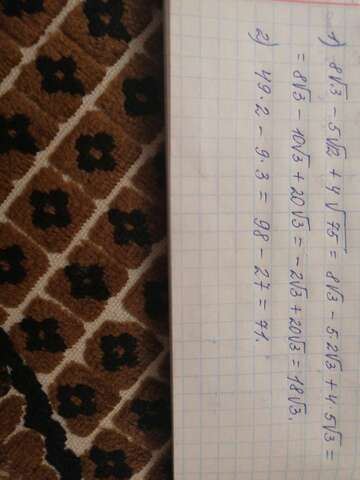 1) 8√3 - 5√12 + 4√75 = 8√3 - 5·2√3 + 4·5√3 =
= 8√3 - 10√3 + 20√3 = -2√3 + 20√3 = 18√3.
2) 49·2 - 9·3 = 98 - 27 = 71.